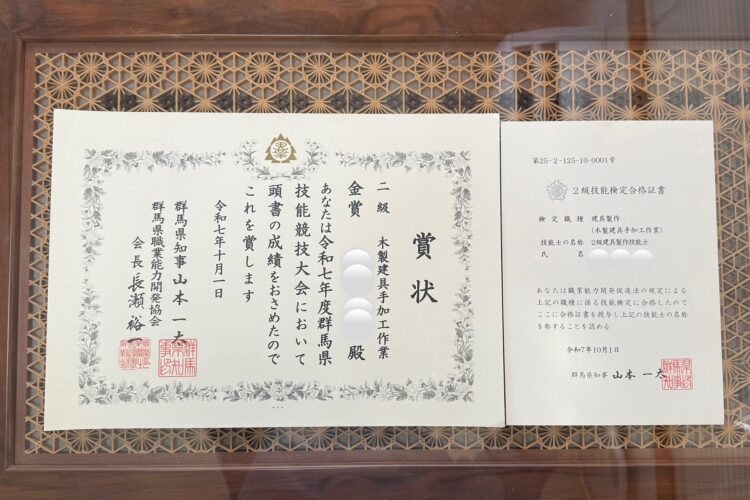 賞状
二級 木製建具手加工作業
金賞 殿
あなたは令和七年度群馬県
技能競技大会において
頭書の成績をおさめたので
これを賞します
令和七年十月一日
群馬県知事 山本一太
群馬県職業能力開発協会
会長 長瀬裕一
第25-2-125-10-0001号
2級技能検定合格証書
検定職種 建具製作
(木製建具手加工作業)
技能士の名称 2級建具製作技能士
氏名
あなたは職業能力開発促進法の規定による
上記の職種に係る技能検定に合格したので
ここに合格証書を授与し上記の技能士の名称
を称することを認める
令和7年10月1日
群馬県知事 山本一太